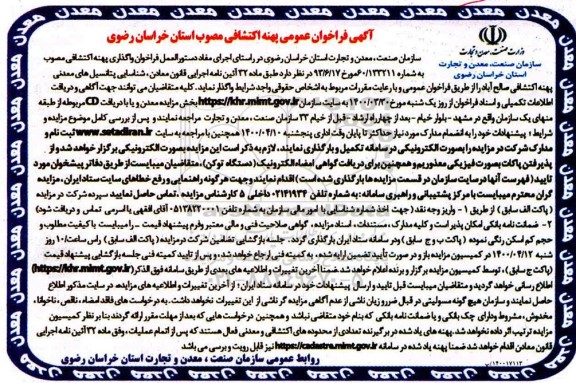 آگهی فراخوان عمومی پهنه اکتشافی مصوب استان خراسان رضوی
وزارت صنعت، معدن و تجارت
سازمان صنعت، معدن و تجارت
استان خراسان رضوی
سازمان صنعت، معدن و تجارت استان خراسان رضوی در راستای اجرای مفاد دستورالعمل فراخوان واگذاری پهنه اکتشافی مصوب
به شماره ۶۰/۱۳۳۲۱۱ مورخ ۹۳/۶/۱۲ در نظر دارد طبق ماده ۳۲ آئین نامه اجرایی قانون معادن، شناسایی پتانسیل های معدنی
پهنه اکتشافی صالح آباد را از طریق فراخوان عمومی و با رعایت مقررات مربوط به اشخاص حقوقی واجد شرایط واگذار نماید. کلیه متقاضیان می توانند جهت آگاهی و دریافت
اطلاعات تکمیلی و اسناد فراخوان از روز یک شنبه مورخ به سایت سازمان https://khr.mimt.gov.ir بخش مزایده معدن و یا با دریافت CD مربوطه از طبقه
منهای یک سازمان واقع در مشهد - بلوار خیام - بعد از چهارراه ارشاد - قبل از خیام ۳۳ سازمان صنعت، معدن و تجارت مراجعه نمایند و پس از بررسی کامل موضوع مزایده و
شرایط، پیشنهادات خود را به انضمام مدارک مورد نیاز حداکثر تا پایان وقت اداری پنجشنبه ۱۴۰۰/۰۴/۱۰ همچنین با مراجعه به سایت www.setadiran.ir ثبت نام و
مدارک شرکت در مزایده را بصورت الکترونیکی در سامانه تکمیل و بارگذاری نمایند. لازم به ذکر است این مزایده بصورت الکترونیکی برگزار خواهد شد و از
پذیرفتن پاکات بصورت فیزیکی معذوریم و همچنین برای دریافت گواهی امضاء الکترونیک (دستگاه توکن)، متقاضیان میبایست از طریق دفاتر پیشخوان مورد
تایید (فهرست آنها در سایت سازمان در قسمت مزایده ها بارگذاری شده است) اقدام نمایند و جهت هر گونه راهنمایی و رفع خطاهای سایت ستاد ایران، مزایده
گران محترم میبایست با مرکز پشتیبانی و راهبری سامانه: به شماره تلفن ۰۲۱۴۱۹۳۴ داخلی ۵ کارشناس مزایده، تماس حاصل نمایند سپرده شرکت در مزایده
(پاکت الف سابق) از طریق ۱- واریز وجه نقد (جهت اخذ شماره شناسایی با امور مالی سازمان به شماره تلفن آقای افقهی یا اسرمی تماس و دریافت شود)
۲- ضمانت نامه بانکی امکان پذیر است و کلیه مدارک، مستندات، اسناد مزایده، گواهی صلاحیت فنی و مالی معتبر و فرم پیشنهاد قیمت را میبایست با کیفیت مطلوب و
حجم کم اسکن رنگی نموده (پاکت ب و ج سابق) و در سامانه ستاد ایران بارگذاری گردد. جلسه بازگشایی تضامین شرکت در مزایده (پاکت الف سابق) راس ساعت ۱۰ روز
شنبه ۱۴۰۰/۰۴/۱۲ در کمیسیون مزایده باز و در صورت تایید تضمین ارایه شده، به کمیته فنی ارجاع خواهد شد، و پس از تایید کمیته فنی جلسه بازگشایی پیشنهاد قیمت
(پاکت ج سابق)، توسط کمیسیون مزایده برگزار و برنده اعلام خواهد شد. ضمناً آخرین تغییرات و اطلاعیه های بعدی از طریق سامانه فوق الذکر (https://khr.mimt.gov.ir)
اطلاع رسانی خواهد گردید و متقاضیان میبایست قبل تایید و ارسال پیشنهادات خود در سامانه ستاد ایران، از آخرین تغییرات و اطلاعیه های مزایده، در سایت مذکور اطلاع
حاصل نمایند و سازمان هیچ گونه مسوولیتی در قبال ضرر و زیان ناشی از عدم آگاهی مزایده گر ناشی از این تغییرات نخواهد داشت. به درخواست های فاقد امضاء، ناقص، ناخوانا،
مخدوش، مشروط و دارای چک بانکی و یا ضمانت نامه بانکی که بنام خود متقاضی نباشد و همچنین درخواست هایی که بعد از مهلت مقرر ارائه گردند بنا بر نظر کمیسیون
مزایده ترتیب اثر داده نخواهد شد. پهنه های یاد شده در برگیرنده تعدادی از محدوده های اکتشافی و معدنی فعال هستند که پس از اتمام عملیات، وفق ماده ۳۲ آئین نامه اجرایی
قانون معادن اقدام خواهد شد. ضمنا پهنه یاد شده در سامانه https://cadastre.mimt.gov.ir نیز قابل رویت و بررسی می باشد
روابط عمومی سازمان صنعت، معدن و تجارت استان خراسان رضوی
۱۴۰۰۱۷۱۱۳/م